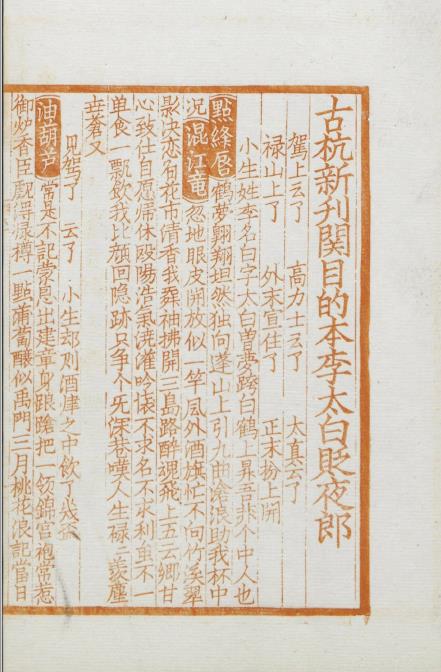 古杭新刋関目的本李太白貶夜郎
駕上云了　高力士云了　太真云了
禄山上了　外末宣住了　正末扮上開
小生姓李名白字太白曽夢跨白鶴上昇吾非个中人也
點絳唇鶴夢翱翔坦然独向蓬山上引九曲滄浪助我杯中
况混江竜忽地眼皮開放似一竿風外酒旗忙不向竹溪翠
影决恋花市清香我舞袖拂開三島路醉魂飛上五云鄉甘
心致仕自愿帰休殴陽浩氣洗濯吟懷不求名不求利虽不一
单食一瓢飲我比顔回隐跡只争个无深巷嘆人生禄二羨塵
世蒼又
見駕了　云了　小生却則酒庫之中飲了幾盃
油胡芦常是不記蒙恩出建章身踉蹌把一領錦官袍常惹
御炉香臣覰得渌樽一點葡萄釀似禹門三月桃花浪記當日